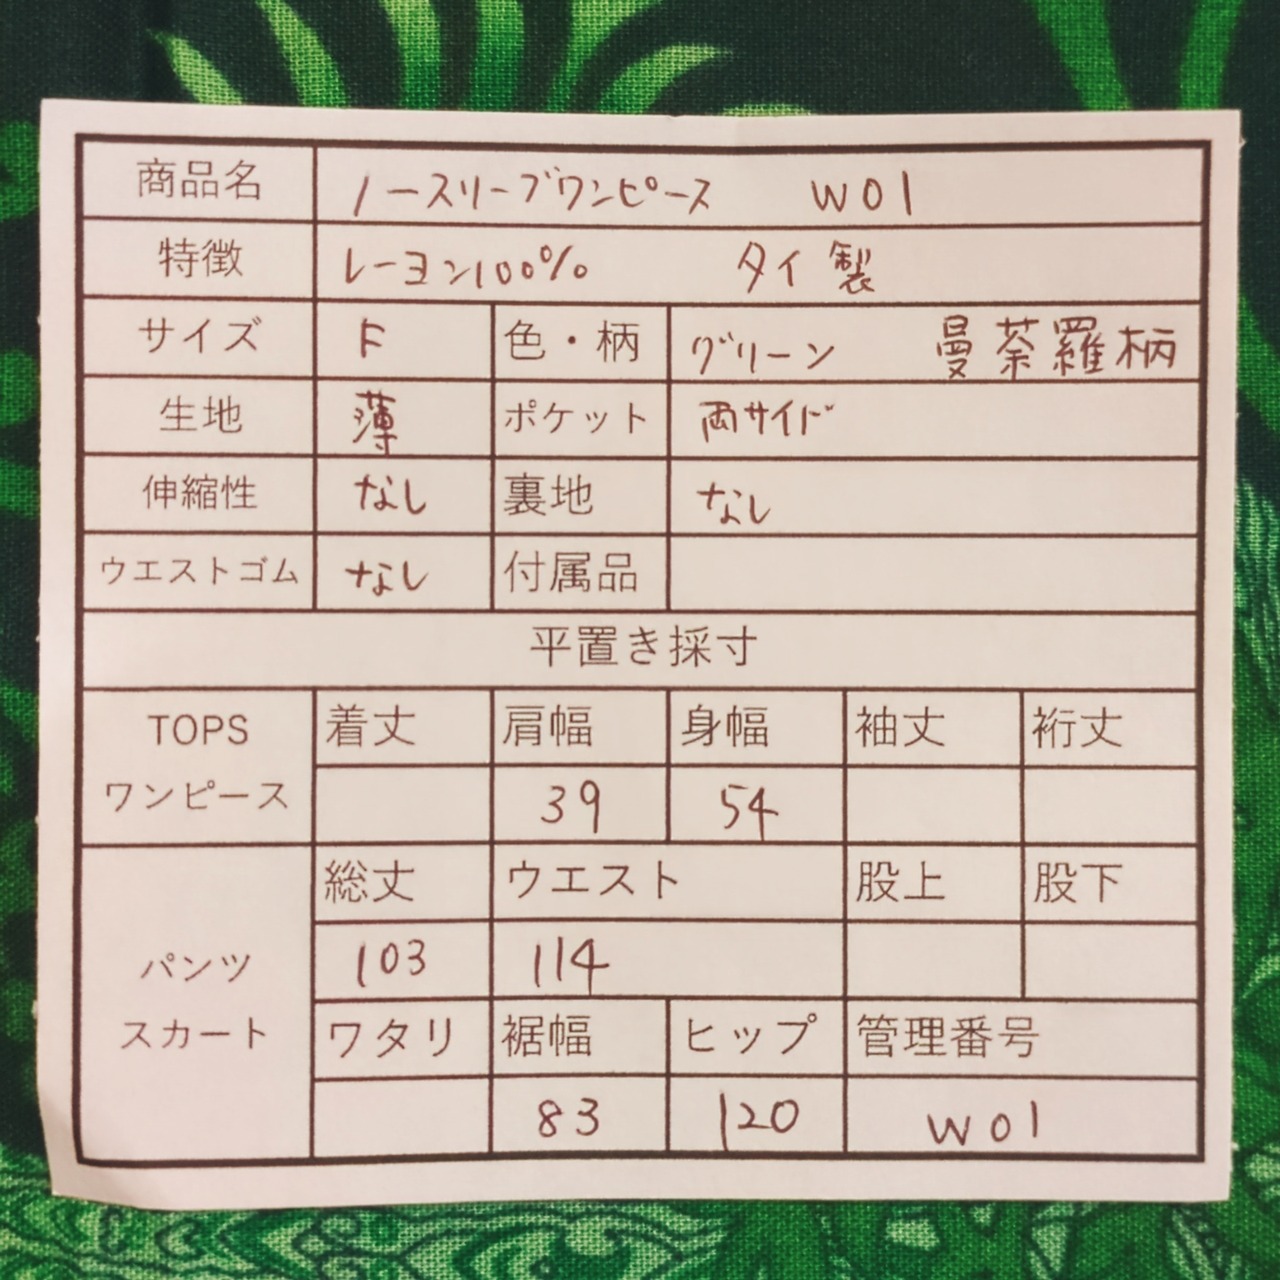 商品名 ノースリーブワンピース W01
特徴 レーヨン100% タイ製
サイズ F 色・柄 グリーン 曼荼羅柄
生地 薄 ポケット 両サイド
伸縮性 なし 裏地 なし
ウエストゴム なし 付属品
平置き採寸
TOPS 着丈 肩幅 身幅 袖丈 裄丈
ワンピース 39 54
総丈 ウエスト 股上 股下
パンツ 103 114
スカート ワタリ 裾幅 ヒップ 管理番号
83 120 W01